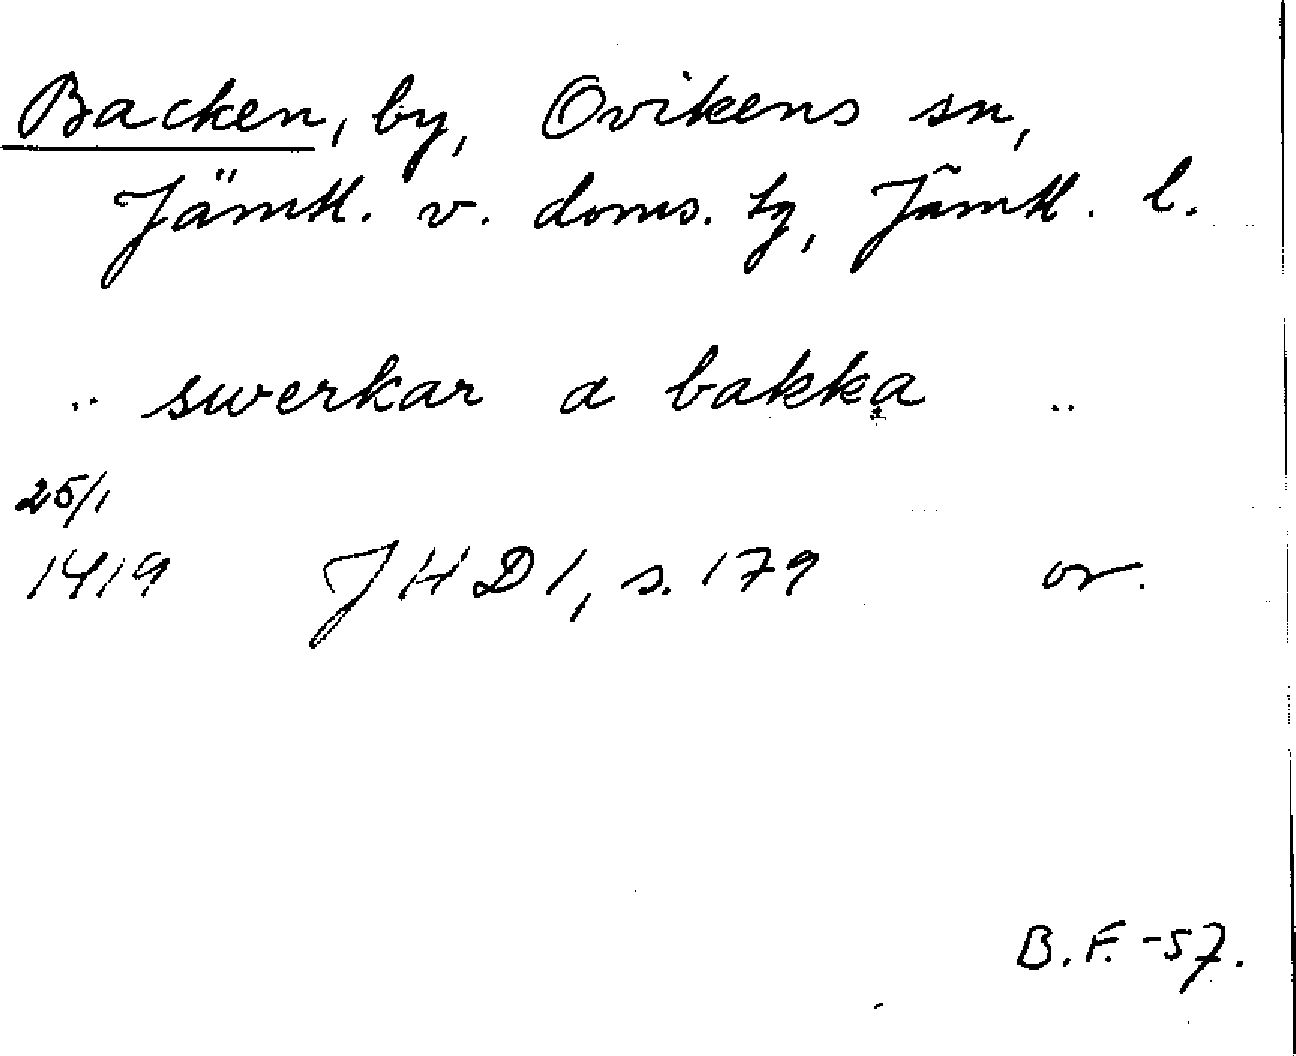 Backen, by, Ovikens sn,
Jämtl. v. doms. tg, Jämtl. l.
.. swerkar a bakka ..
25/1
1419 JHD 1, s. 179 or.
B.F. -57.